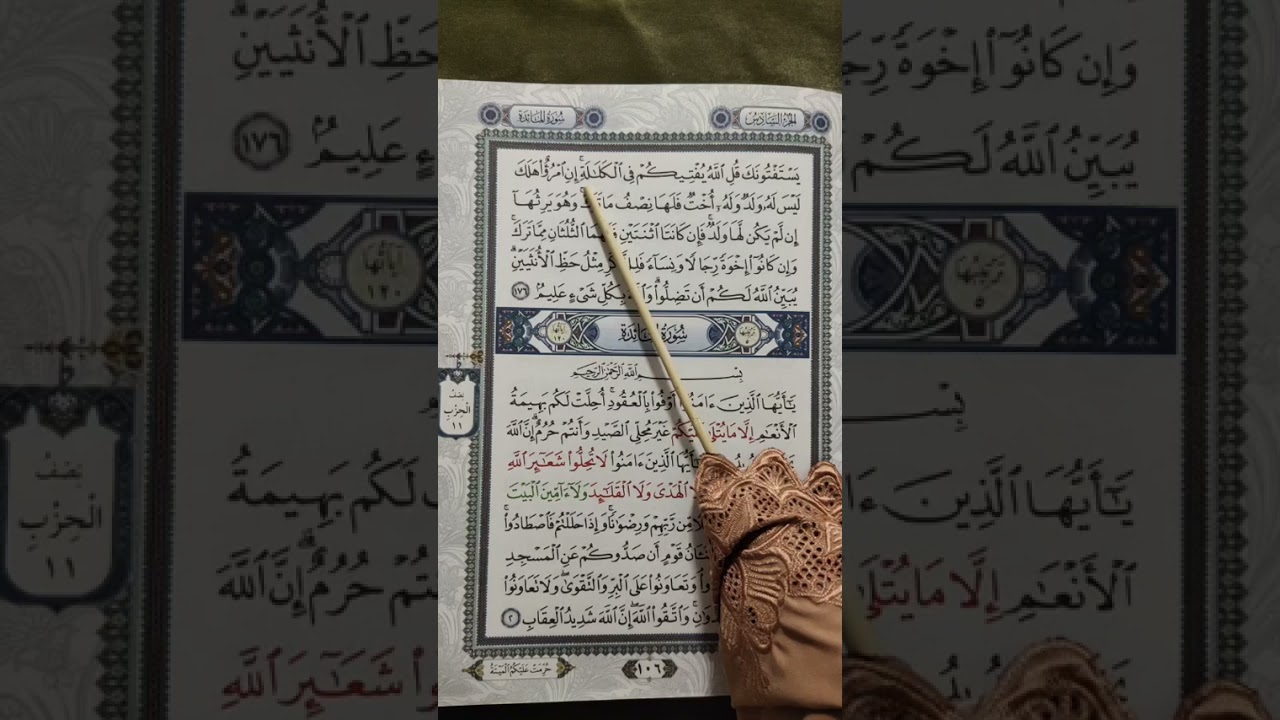 الجزء السادس
سورة المائدة
يَسْتَفْتُونَكَ قُلِ ٱللَّهُ يُفْتِيكُمْ فِى ٱلْكَلَٰلَةِ ۚ إِنِ ٱمْرُؤٌا۟ هَلَكَ
لَيْسَ لَهُۥ وَلَدٌ وَلَهُۥٓ أُخْتٌ فَلَهَا نِصْفُ مَا تَرَكَ ۚ وَهُوَ يَرِثُهَآ
إِن لَّمْ يَكُن لَّهَا وَلَدٌ ۚ فَإِن كَانَتَا ٱثْنَتَيْنِ فَلَهُمَا ٱلثُّلُثَانِ مِمَّا تَرَكَ ۚ
وَإِن كَانُوٓا۟ إِخْوَةً رِّجَالًا وَنِسَآءً فَلِلذَّكَرِ مِثْلُ حَظِّ ٱلْأُنثَيَيْنِ ۗ
يُبَيِّنُ ٱللَّهُ لَكُمْ أَن تَضِلُّوا۟ ۗ وَٱللَّهُ بِكُلِّ شَىْءٍ عَلِيمٌۢ ١٧٦
ترتيبها ٥ سورة المائدة آياتها ١٢٠
بِسْمِ ٱللَّهِ ٱلرَّحْمَٰنِ ٱلرَّحِيمِ
يَٰٓأَيُّهَا ٱلَّذِينَ ءَامَنُوٓا۟ أَوْفُوا۟ بِٱلْعُقُودِ ۚ أُحِلَّتْ لَكُم بَهِيمَةُ
ٱلْأَنْعَٰمِ إِلَّا مَا يُتْلَىٰ عَلَيْكُمْ غَيْرَ مُحِلِّى ٱلصَّيْدِ وَأَنتُمْ حُرُمٌ ۗ إِنَّ ٱللَّهَ
يَٰٓأَيُّهَا ٱلَّذِينَ ءَامَنُوا۟ لَا تُحِلُّوا۟ شَعَٰٓئِرَ ٱللَّهِ
ٱلْهَدْىَ وَلَا ٱلْقَلَٰٓئِدَ وَلَآ ءَآمِّينَ ٱلْبَيْتَ
مِّن رَّبِّهِمْ وَرِضْوَٰنًا ۚ وَإِذَا حَلَلْتُمْ فَٱصْطَادُوا۟ ۚ
قَوْمٍ أَن صَدُّوكُمْ عَنِ ٱلْمَسْجِدِ
وَتَعَاوَنُوا۟ عَلَى ٱلْبِرِّ وَٱلتَّقْوَىٰ ۖ وَلَا تَعَاوَنُوا۟
وَٱتَّقُوا۟ ٱللَّهَ ۖ إِنَّ ٱللَّهَ شَدِيدُ ٱلْعِقَابِ ٢
نصف
الحزب
١١
١٠٦
حُرِّمَتْ عَلَيْكُمُ ٱلْمَيْتَةُ